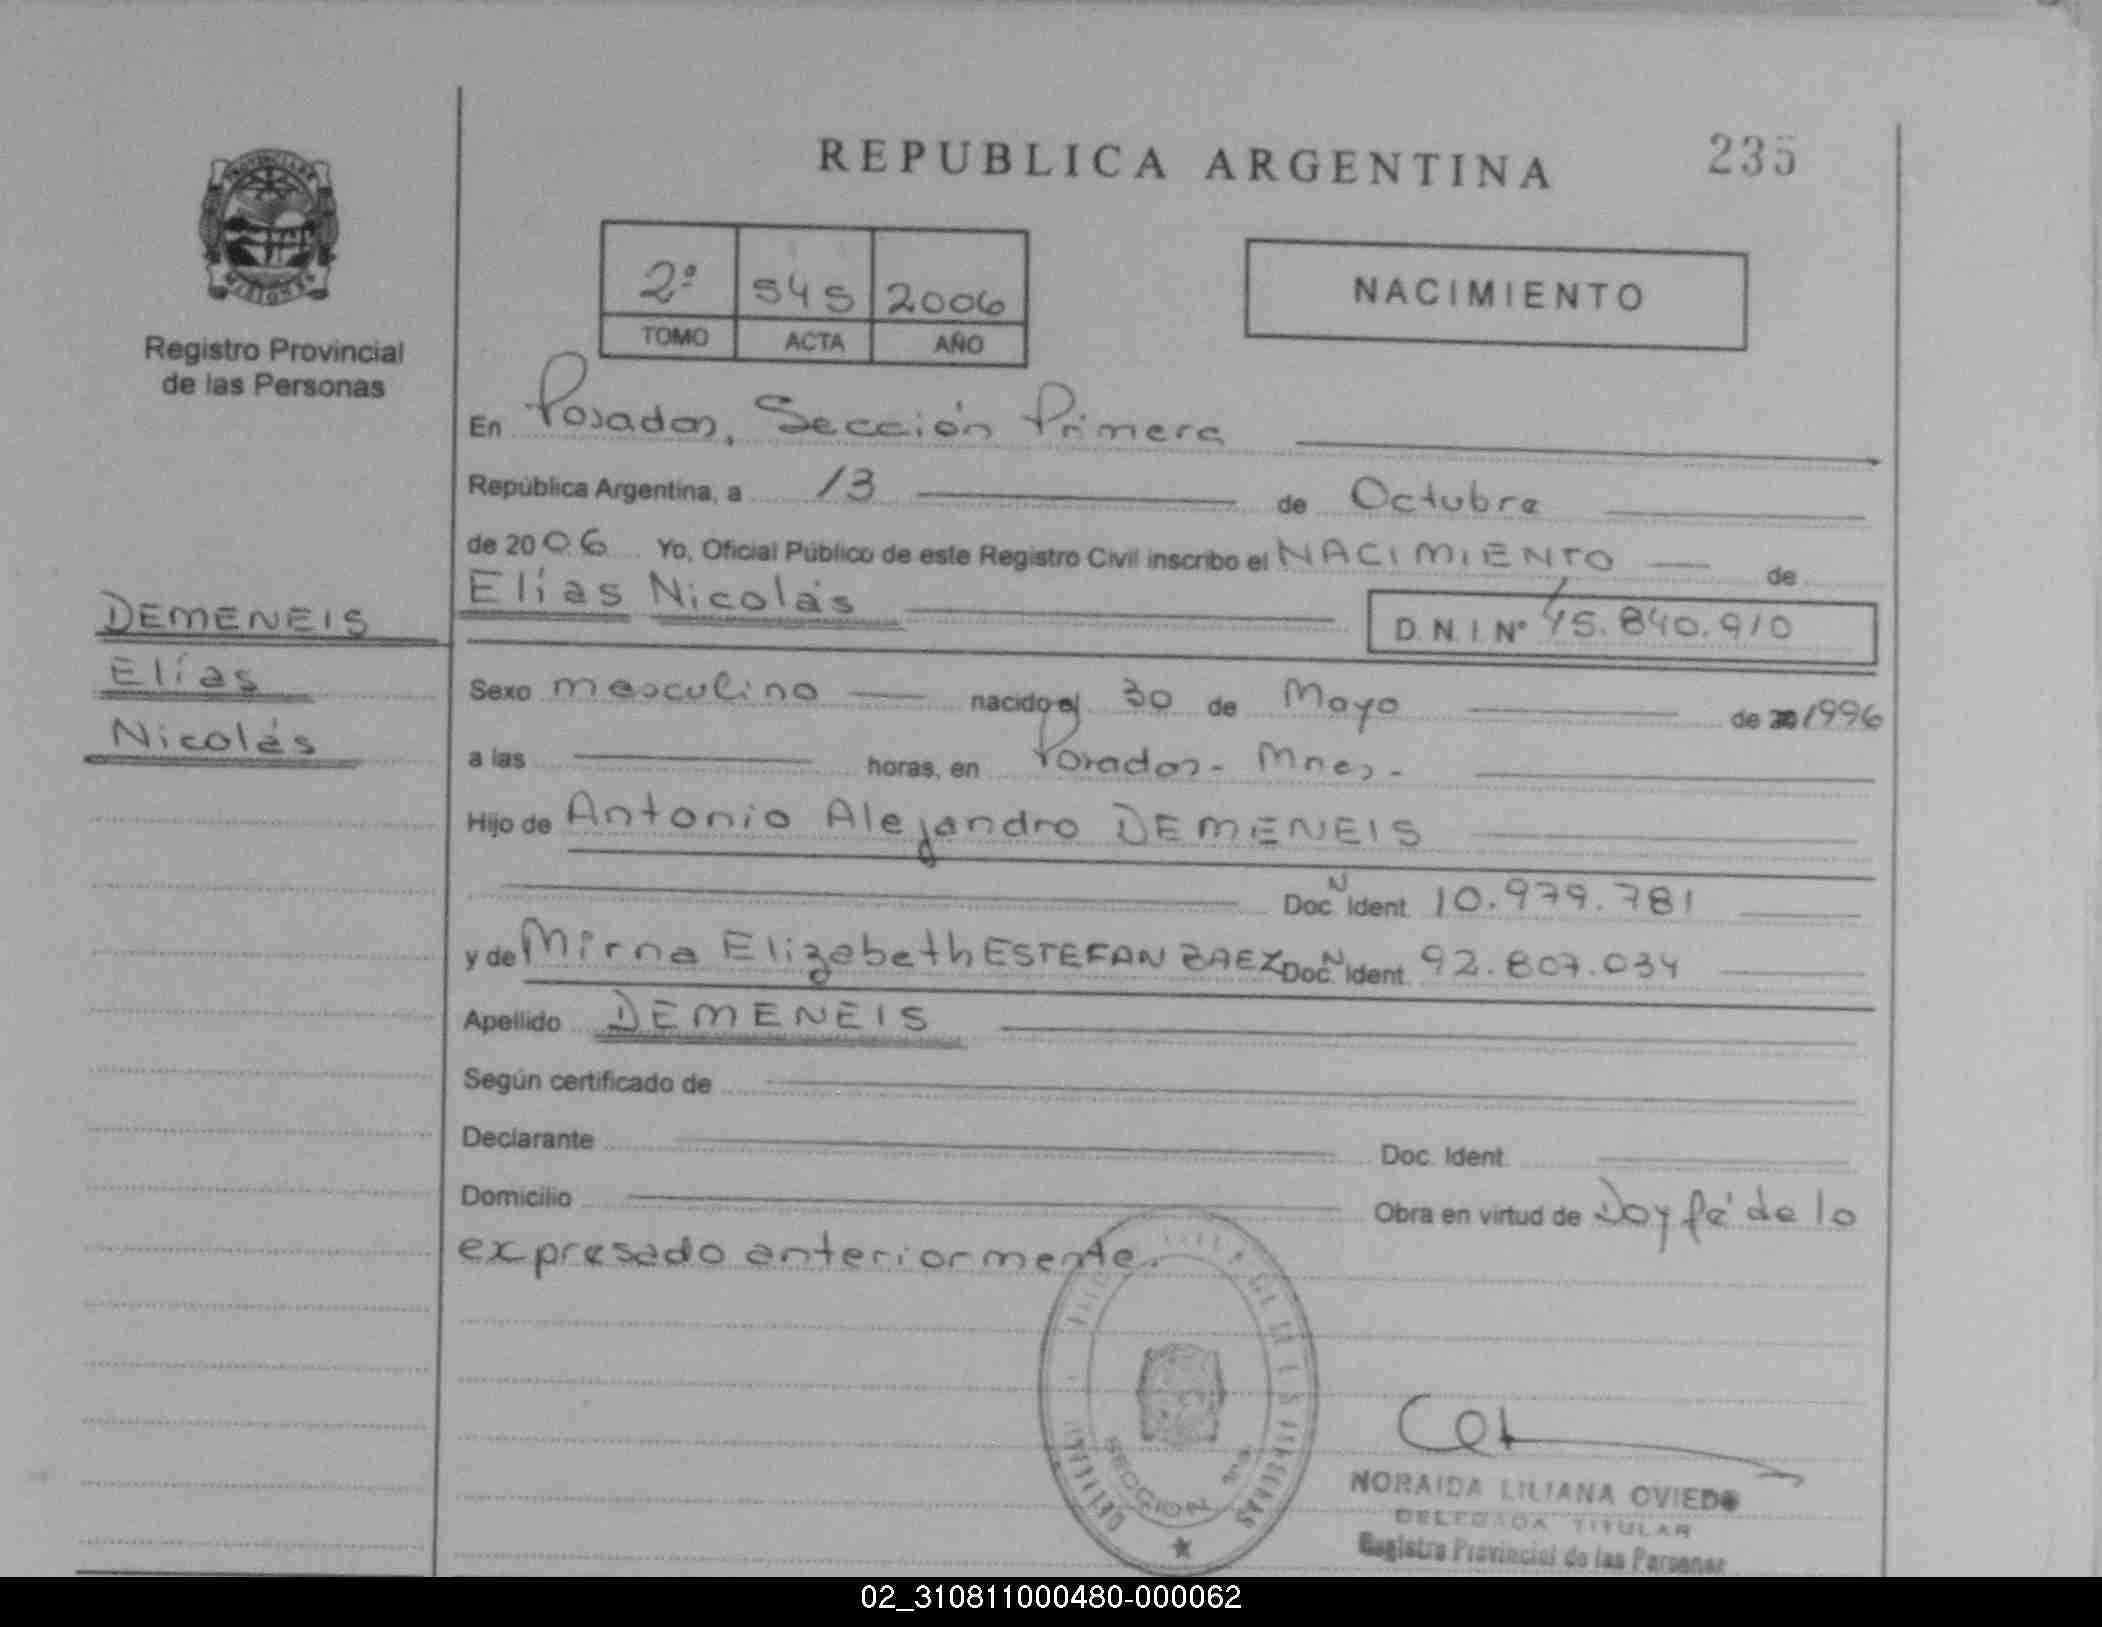 REPUBLICA ARGENTINA
235
PROVINCIA DE
MISIONES
Registro Provincial
de las Personas
2º 545 2006
TOMO ACTA AÑO
NACIMIENTO
En Posadas, Sección Primera
República Argentina, a 13 de Octubre
de 2006 Yo, Oficial Público de este Registro Civil inscribo el NACIMIENTO de
Elías Nicolás
D.N.I. Nº 45.840.910
DEMENEIS
Elías
Nicolás
Sexo masculino nacido el 30 de Mayo de 1996
a las horas, en Posadas - Mnes.-
Hijo de Antonio Alejandro DEMENEIS
Doc. N Ident. 10.979.781
y de Mirna Elizabeth ESTEFAN BAEZ Doc. N Ident. 92.807.034
Apellido DEMENEIS
Según certificado de
Declarante Doc. Ident.
Domicilio Obra en virtud de Doy fé de lo
expresado anteriormente.
SECCION 1ra
NORAIDA LILIANA OVIEDO
DELEGADA TITULAR
Registro Provincial de las Personas
02_310811000480-000062